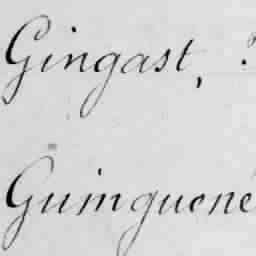 Gingast,
Guinguené